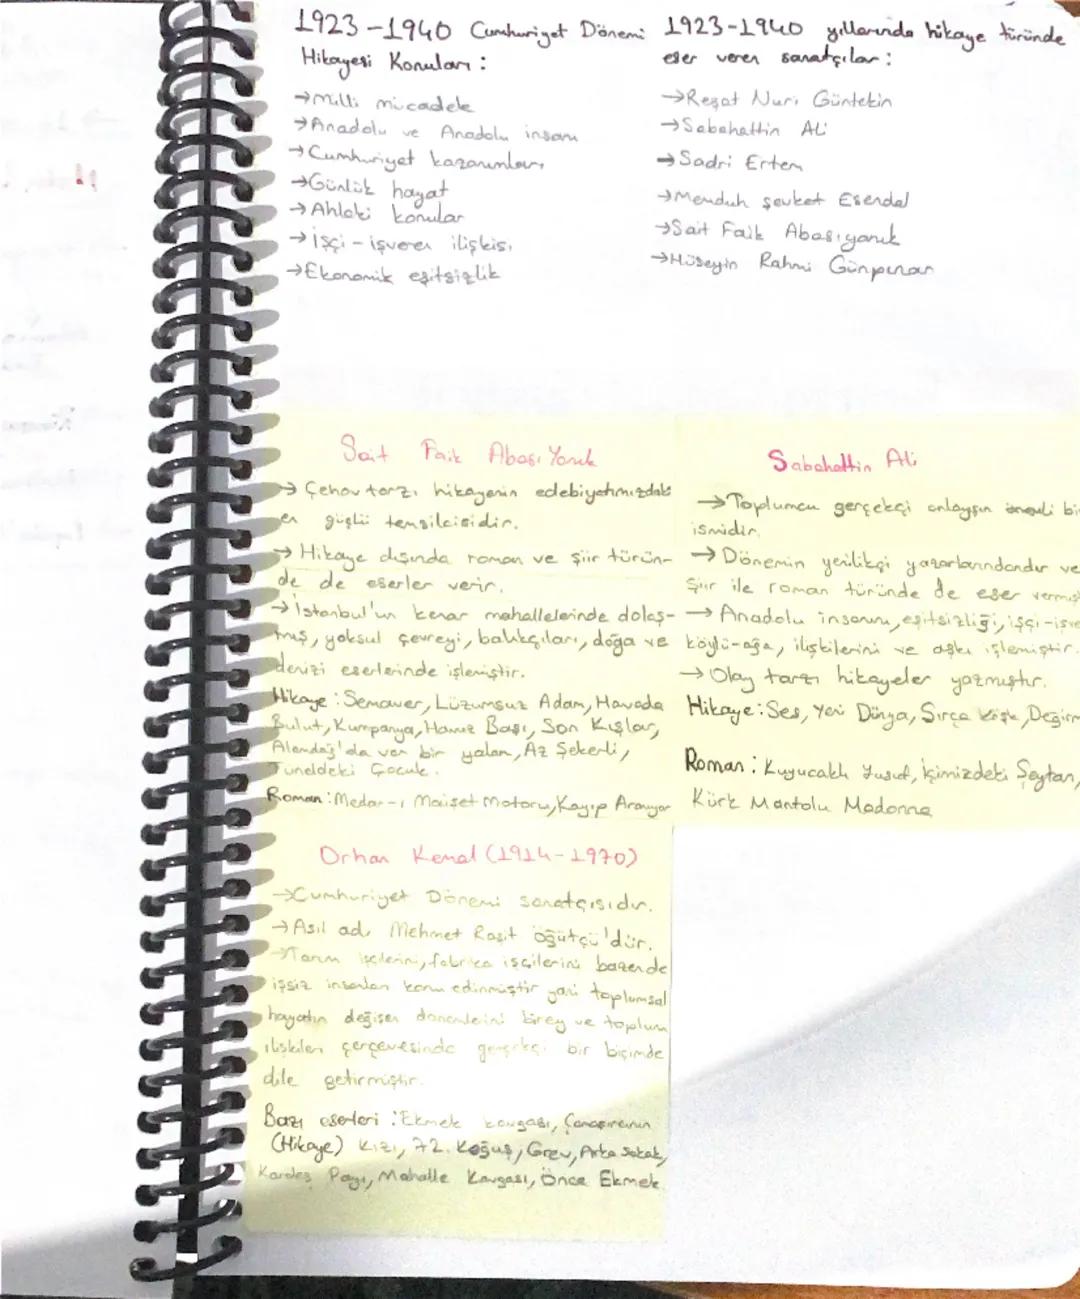 1923-1940 Cumhuriyet Dönemi
Hikayesi Konuları :
→Milli mücadele
→Anadolu ve Anadolu insanı
→Cumhuriyet kazanımları
→Günlük hayat
→Ahlaki konular
→İşçi-işveren ilişkisi
→Ekonomik eşitsizlik
1923-1940 yıllarında hikaye türünde
eser veren sanatçılar :
→Reşat Nuri Güntekin
→Sabahattin Ali
→Sadri Ertem
→Memduh Şevket Esendal
→Sait Faik Abasıyanık
→Hüseyin Rahmi Günpınar
Sait Faik Abası Yanık
→Çehov tarzı hikayenin edebiyatımızdaki
en güçlü temsilcisidir.
→Hikaye dışında roman ve şiir türün-
de de eserler verir.
→İstanbul'un kenar mahallelerinde dolaş-
mış, yoksul çevreyi, balıkçıları, doğa ve
denizi eserlerinde işlemiştir.
Hikaye : Semaver, Lüzumsuz Adam, Havada
Bulut, Kumpanya, Havuz Başı, Son Kuşlar,
Alemdağ'da var bir yılan, Az Şekerli,
Tüneldeki Çocuk.
Roman : Medar-ı Maişet Motoru, Kayıp Aranıyor
Sabahattin Ali
→Toplumcu gerçekçi anlayışın önemli bir
ismidir.
→Dönemin yenilikçi yazarlarındandır ve
Şiir ile roman türünde de eser vermiş
→Anadolu insanını, eşitsizliği, işçi-işve
köylü-ağa, ilişkilerini ve aşkı işlemiştir.
→Olay tarzı hikayeler yazmıştır.
Hikaye : Ses, Yeni Dünya, Sırça Köşk, Değirm
Roman : Kuyucaklı Yusuf, İçimizdeki Şeytan,
Kürk Mantolu Madonna
Orhan Kemal (1914-1970)
→Cumhuriyet Dönemi sanatçısıdır.
→Asıl adı Mehmet Raşit Öğütçü'dür.
→Tarım işçilerini, fabrika işçilerini bazende
işsiz insanları konu edinmiştir yani toplumsal
hayatın değişen dönemlerini birey ve toplum
ilişkileri çerçevesinde gerçekçi bir biçimde
dile getirmiştir.
Bazı eserleri : Ekmek kavgası, Çamaşırcının
(Hikaye) Kızı, 72. Koğuş, Grev, Arka Sokak,
Kardeş Payı, Mahalle Kavgası, Önce Ekmek